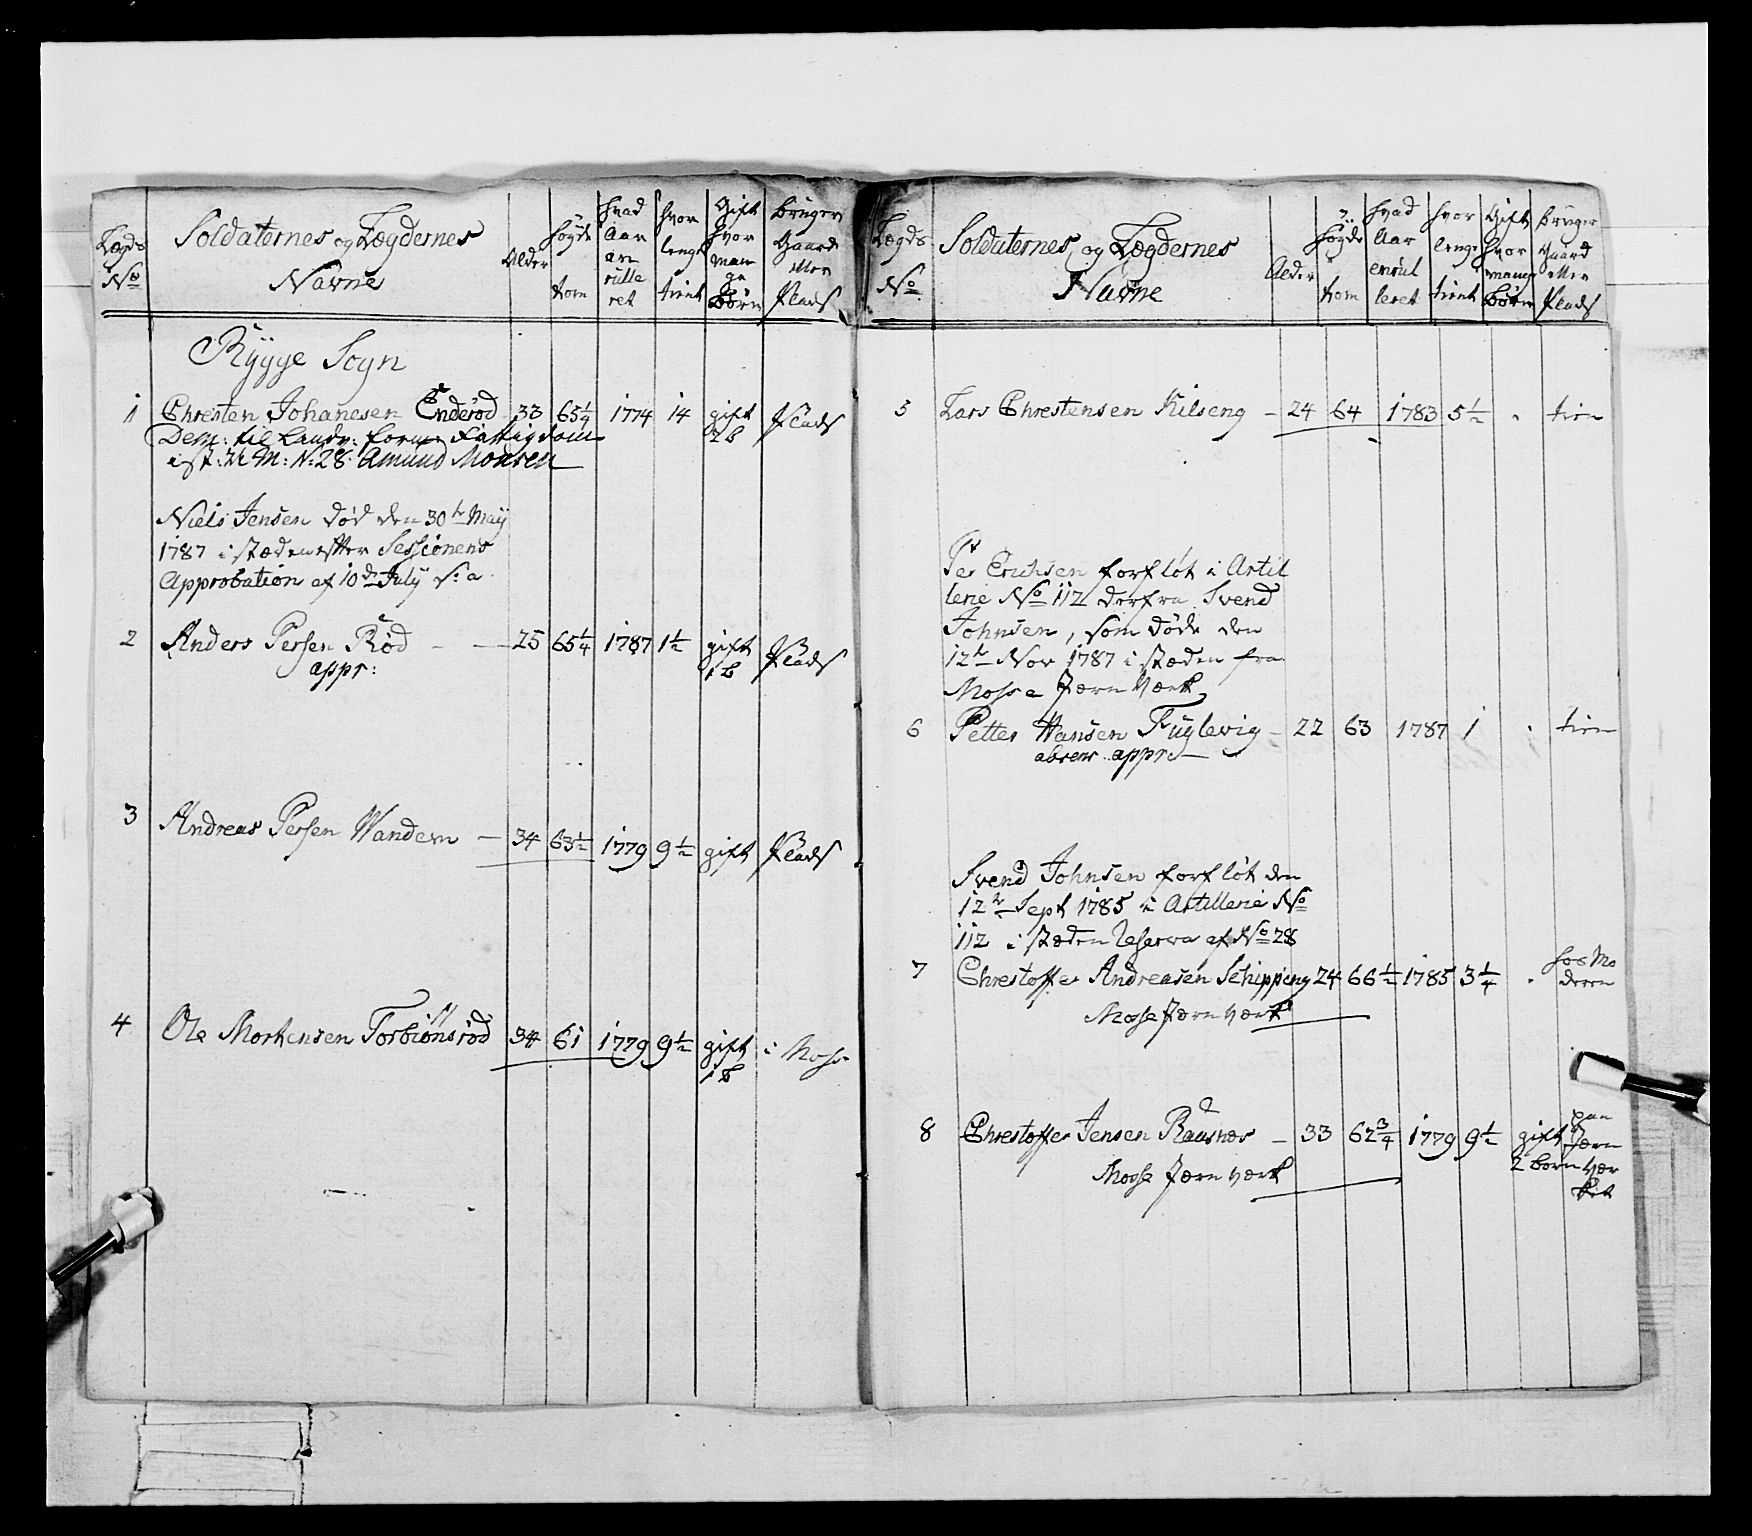 Lægds No
Soldaternes og Lægdernes Navne
Alder
høyde tom
hvad Aar en rulle ret
hvor lenge tient
Gift hvor man ge Børn
bruger Gaard eller Plads
Rygge Sogn
1 Chresten Johanesen Enderød 33 65 1/4 1774 14 gift 2 b Plads
Dem: til Landv: formed
i st: N: 28: Amund Monsen
Niels Jensen død den 30te May
1787 i stæden efter Sessionens
Approbation af 10de July s: a.
2 Anders Persen Rød - - 25 65 1/4 1787 1 1/2 gift 1 b Plads
appr:
3 Andreas Persen Wandem - 34 63 1/2 1779 9 1/2 gift Plads
4 Ole Mortensen Torbiønsrød 34 61 1779 9 1/2 gift 1 b i Moss
Lægds No
Soldaternes og Lægdernes Navne
Alder
høyde tom
hvad Aar enrul leret
hvor lenge tient
Gift hvor mange Børn
bruger Gaard eller Plads
5 Lars Chrestensen Kilseng - 24 64 1783 5 1/2 " tien
Per Erichsen forfløt i Artil
lerie No 112 derfra Svend
Johnsen, som døde den
12te Nov 1787 i stæden fra
Mosse Jærn Værk
6 Petter Hansen Fuglevig - 22 63 1787 1 " tien
absens appr
Svend Johnsen forfløt den
12te Sept 1785 i Artillerie No
112 i stæden Reserva af No 28
7 Chrestoffer Andreasen Schipping 24 66 1/2 1785 3 1/4 " hos Mo
deren
Mosse Jærn værk
8 Chrestoffer Jensen Raasnæs - 33 62 3/4 1779 9 1/2 gift 2 børn paa
Jærn
Vær
ket
Mosse Jærn værk